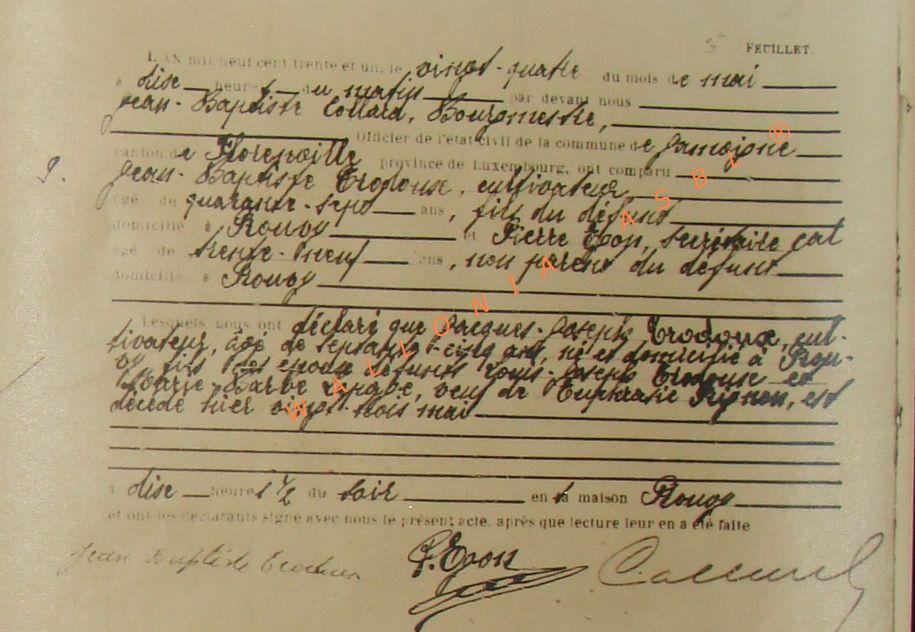 FEUILLET.
L'AN mil neuf cent trente et un, le vingt-quatre du mois de mai
à dix heures du matin par devant nous
Jean-Baptiste Collard, Bourgmestre,
Officier de l'état civil de la commune de Jamoigne
canton de Florenville province de Luxembourg, ont comparu
9. Jean-Baptiste Erodoux, cultivateur,
âgé de quarante-sept ans, fils du défunt
domicilié à Rouvoy et Pierre Epon, secrétaire cal
âgé de trente-neuf ans, non parent du défunt
domicilié à Rouvoy
Lesquels nous ont déclaré que Jacques-Joseph Erodoux, cul-
tivateur, âgé de septante-cinq ans, né et domicilié à Rou-
oy, fils des époux défunts Louis-Joseph Erodouse et
Marie-Barbe, veuf de Euphrasie Pignon, est
décédé hier vingt-trois mai
à dix heures 1/2 du soir en sa maison Rouvoy
et ont les déclarants signé avec nous le présent acte, après que lecture leur en a été faite
Jean Baptiste Erodoux P. Epon Collard
WALLONIA ASBL ®